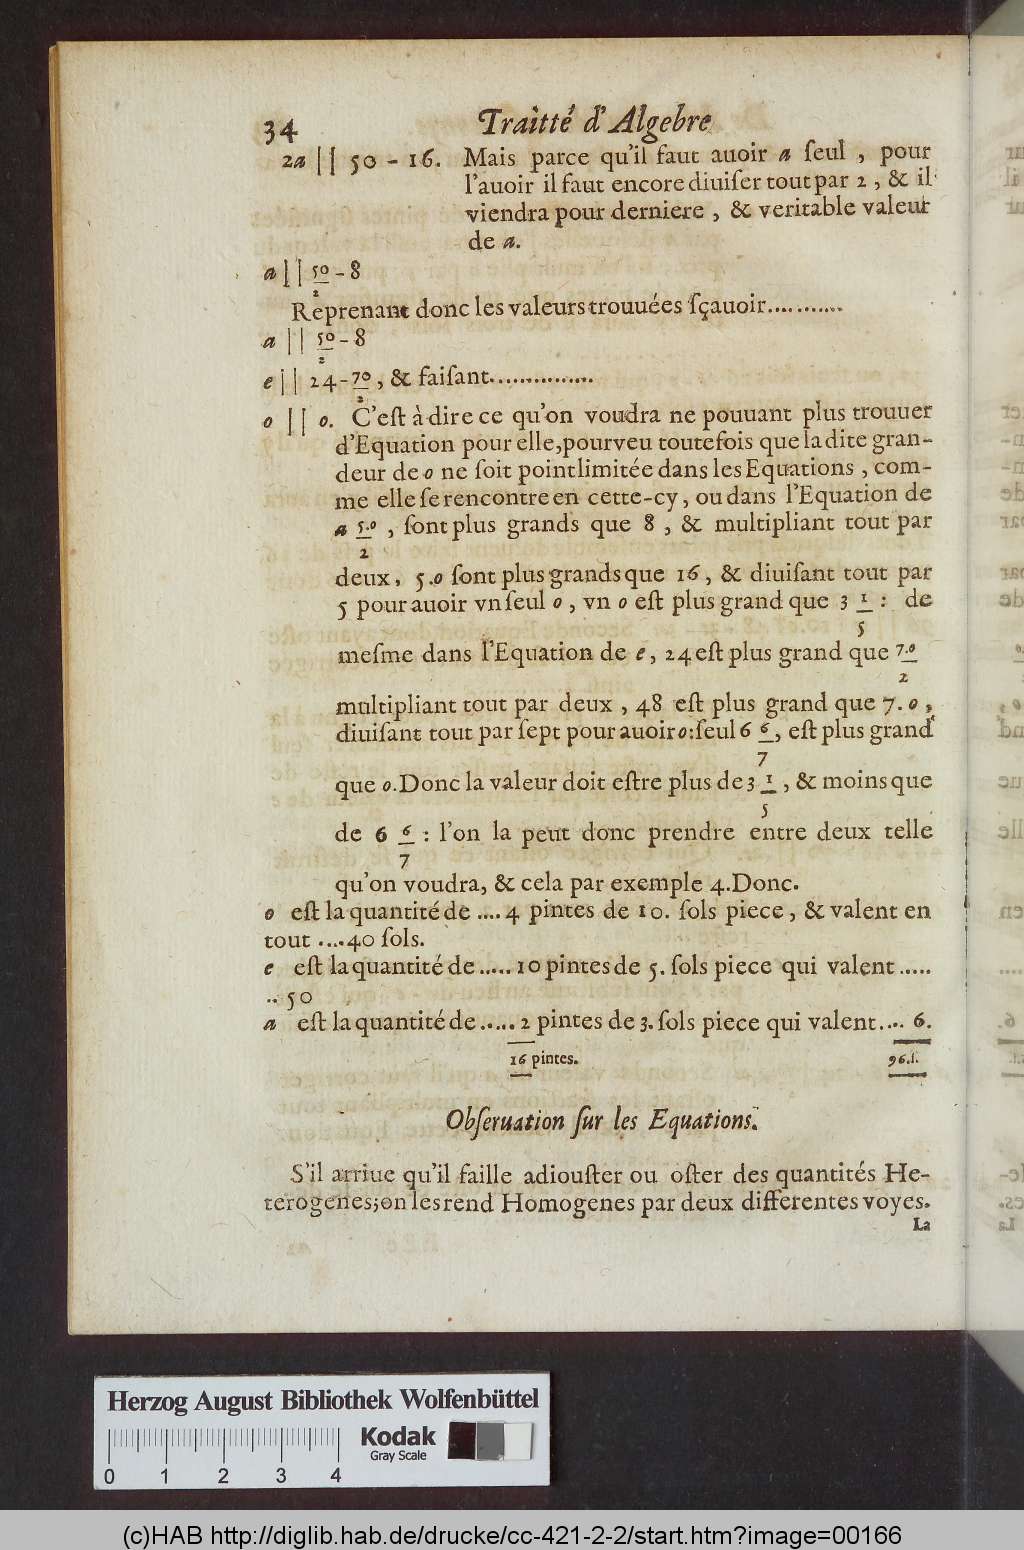 34 Traitté d'Algebre
2a || 5o - 16. Mais parce qu'il faut auoir a ſeul , pour
l'auoir il faut encore diuiſer tout par 2 , & il
viendra pour derniere , & veritable valeur
de a.
a || 5o/2 - 8
Reprenant donc les valeurs trouuées ſçauoir...........
a || 5o/2 - 8
e || 24 - 7o/2 , & faiſant...............
o || o. C'eſt à dire ce qu'on voudra ne pouuant plus trouuer
d'Equation pour elle, pourveu toutefois que la dite gran-
deur de o ne ſoit point limitée dans les Equations , com-
me elle ſe rencontre en cette-cy, ou dans l'Equation de
a 5.o/2 , ſont plus grands que 8 , & multipliant tout par
deux, 5.o ſont plus grands que 16, & diuiſant tout par
5 pour auoir vn ſeul o , vn o eſt plus grand que 3 1/5 : de
meſme dans l'Equation de e, 24 eſt plus grand que 7.o/2
multipliant tout par deux , 48 eſt plus grand que 7. o ,
diuiſant tout par ſept pour auoir o: ſeul 6 6/7, eſt plus grand
que o. Donc la valeur doit eſtre plus de 3 1/5 , & moins que
de 6 6/7 : l'on la peut donc prendre entre deux telle
qu'on voudra, & cela par exemple 4. Donc.
o eſt la quantité de .... 4 pintes de 10. ſols piece, & valent en
tout ....40 ſols.
e eſt la quantité de ..... 10 pintes de 5. ſols piece qui valent .....
.. 50
a eſt la quantité de ..... 2 pintes de 3. ſols piece qui valent.... 6.
16 pintes. 96.ſ.
Obſeruation ſur les Equations.
S'il arriue qu'il faille adiouſter ou oſter des quantités He-
terogenes; on les rend Homogenes par deux differentes voyes.
La
Herzog August Bibliothek Wolfenbüttel
Kodak
Gray Scale
0 1 2 3 4
(c)HAB http://diglib.hab.de/drucke/cc-421-2-2/start.htm?image=00166